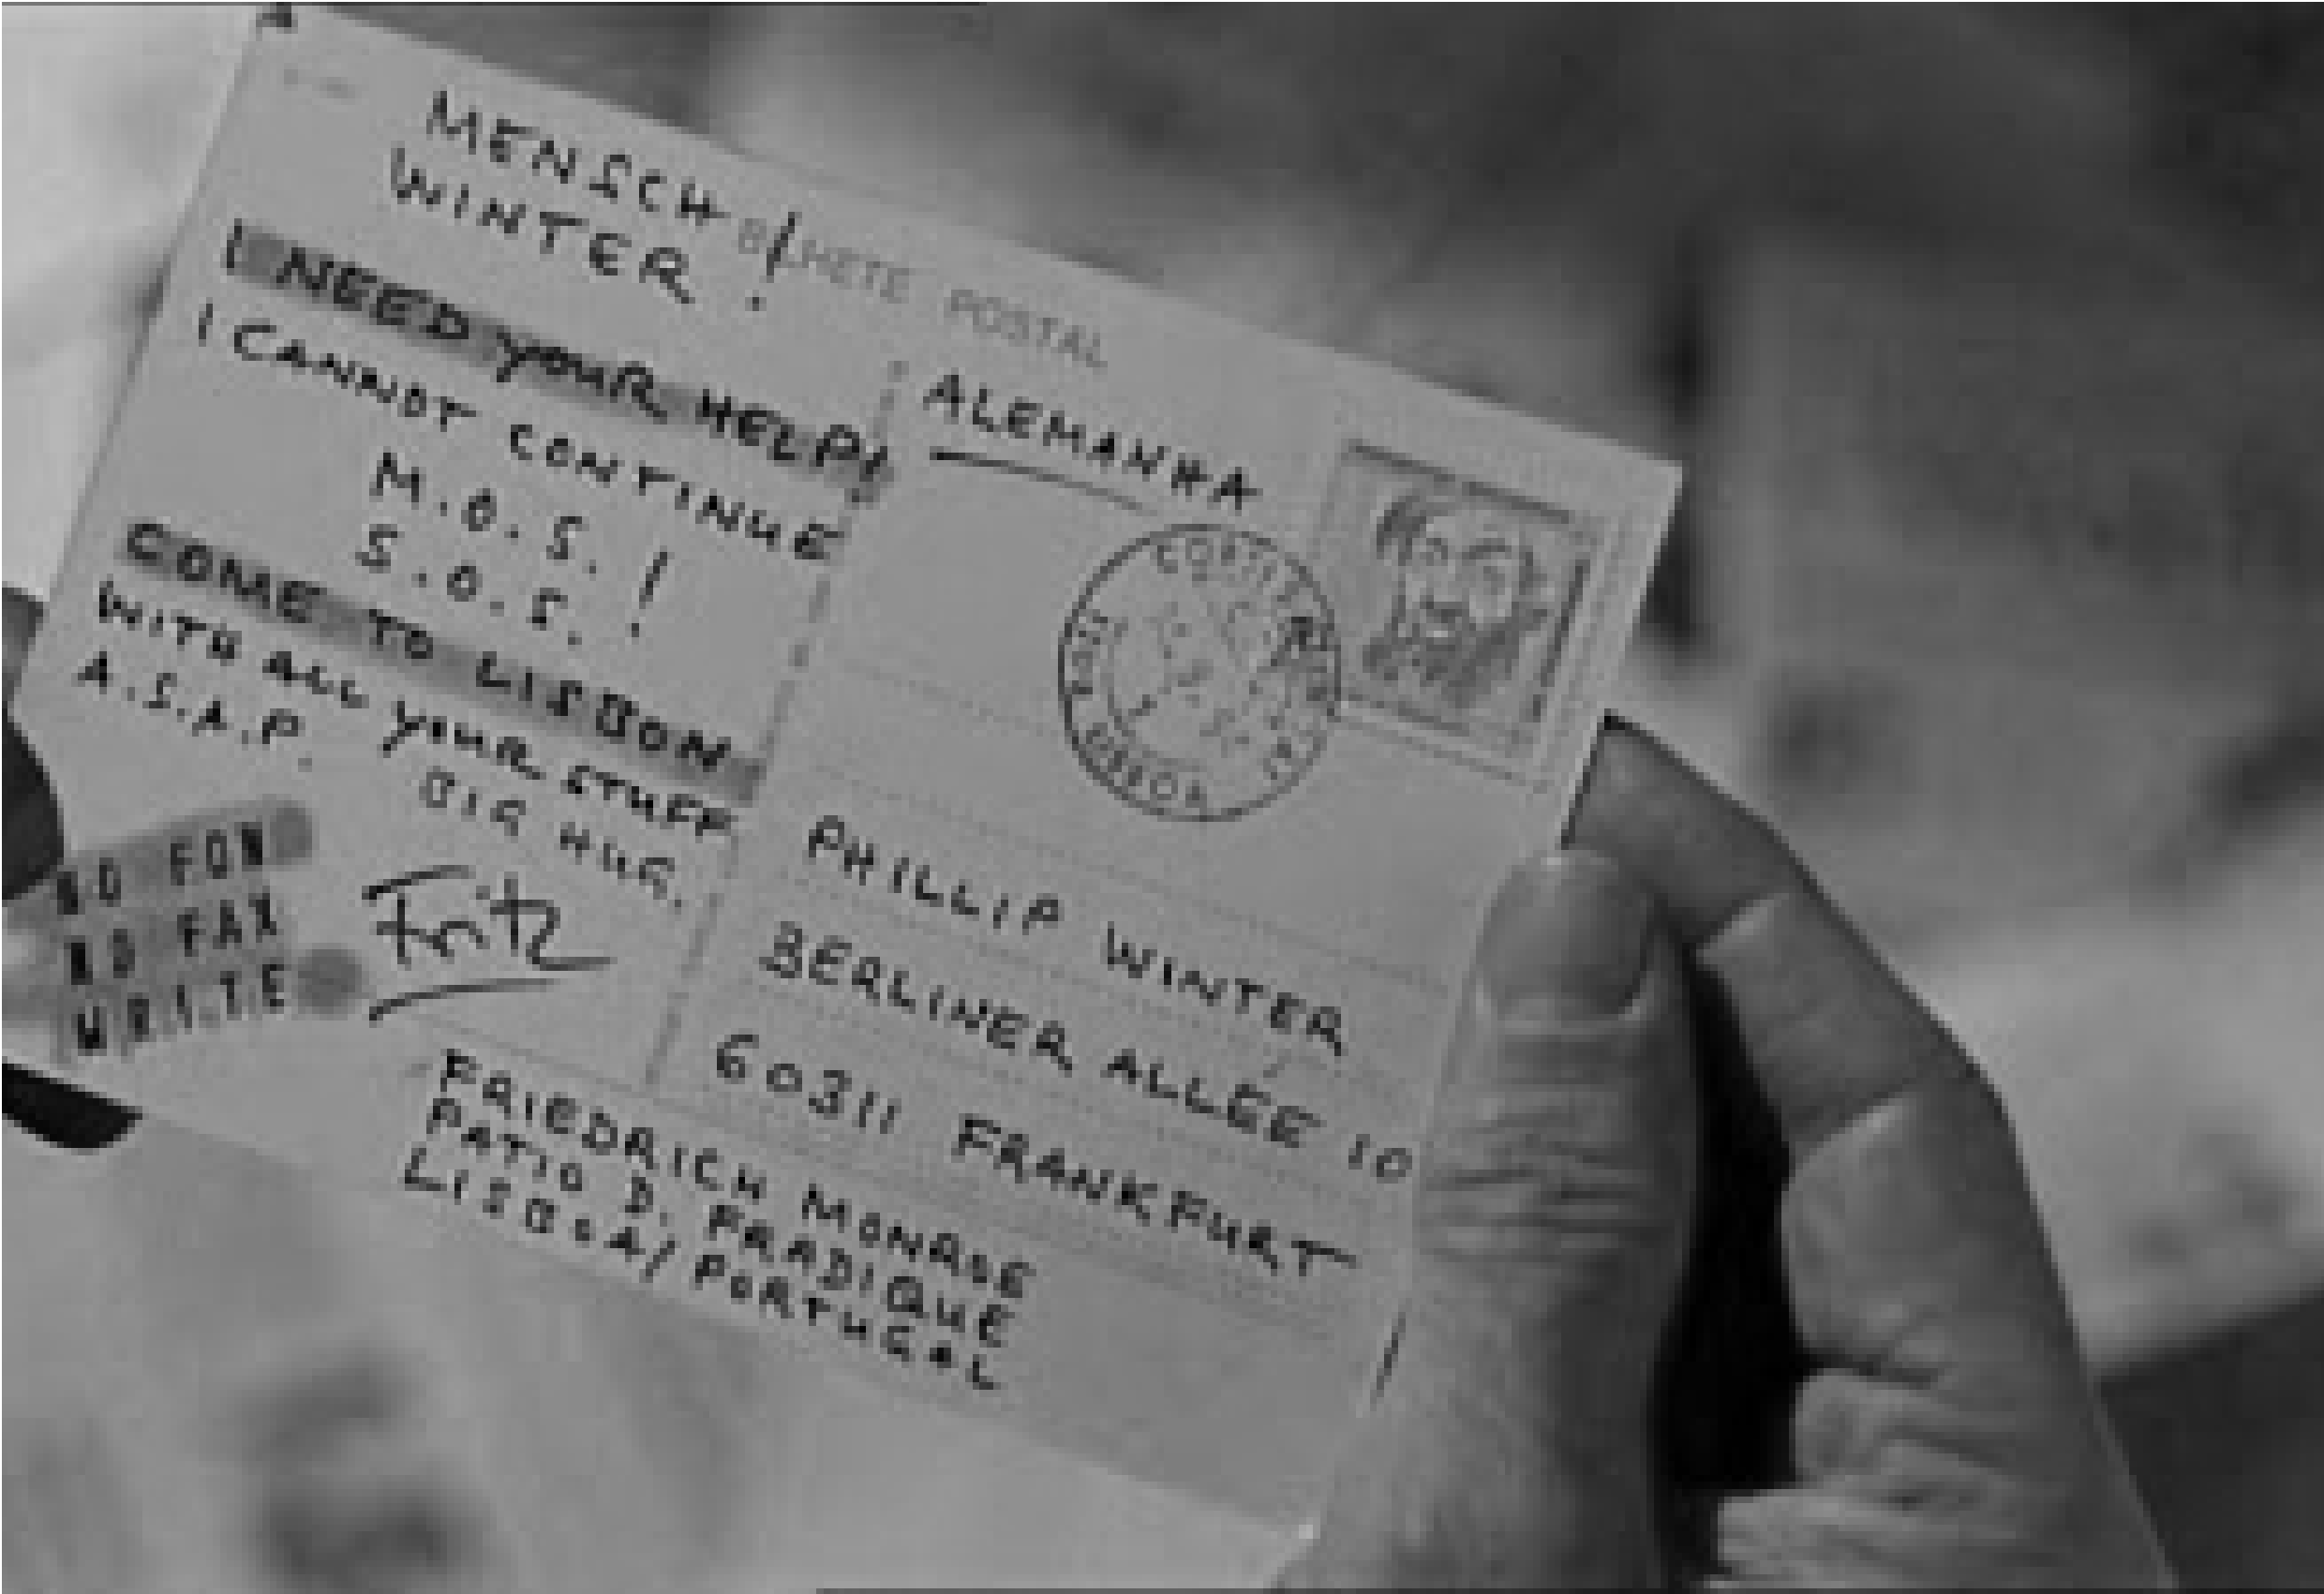 MENSCH
WINTER !
I NEED YOUR HELP!
I CANNOT CONTINUE
M.O.S. !
S.O.S. !
COME TO LISBON
WITH ALL YOUR STUFF
A.S.A.P.
BIG HUG,
Fritz
NO FON
NO FAX
WRITE
POSTAL
ALEMANHA
LISBOA
PHILLIP WINTER
BERLINER ALLEE 10
60311 FRANKFURT
FRIEDRICH MONROE
PATIO D. FRADIQUE
LISBOA/PORTUGAL